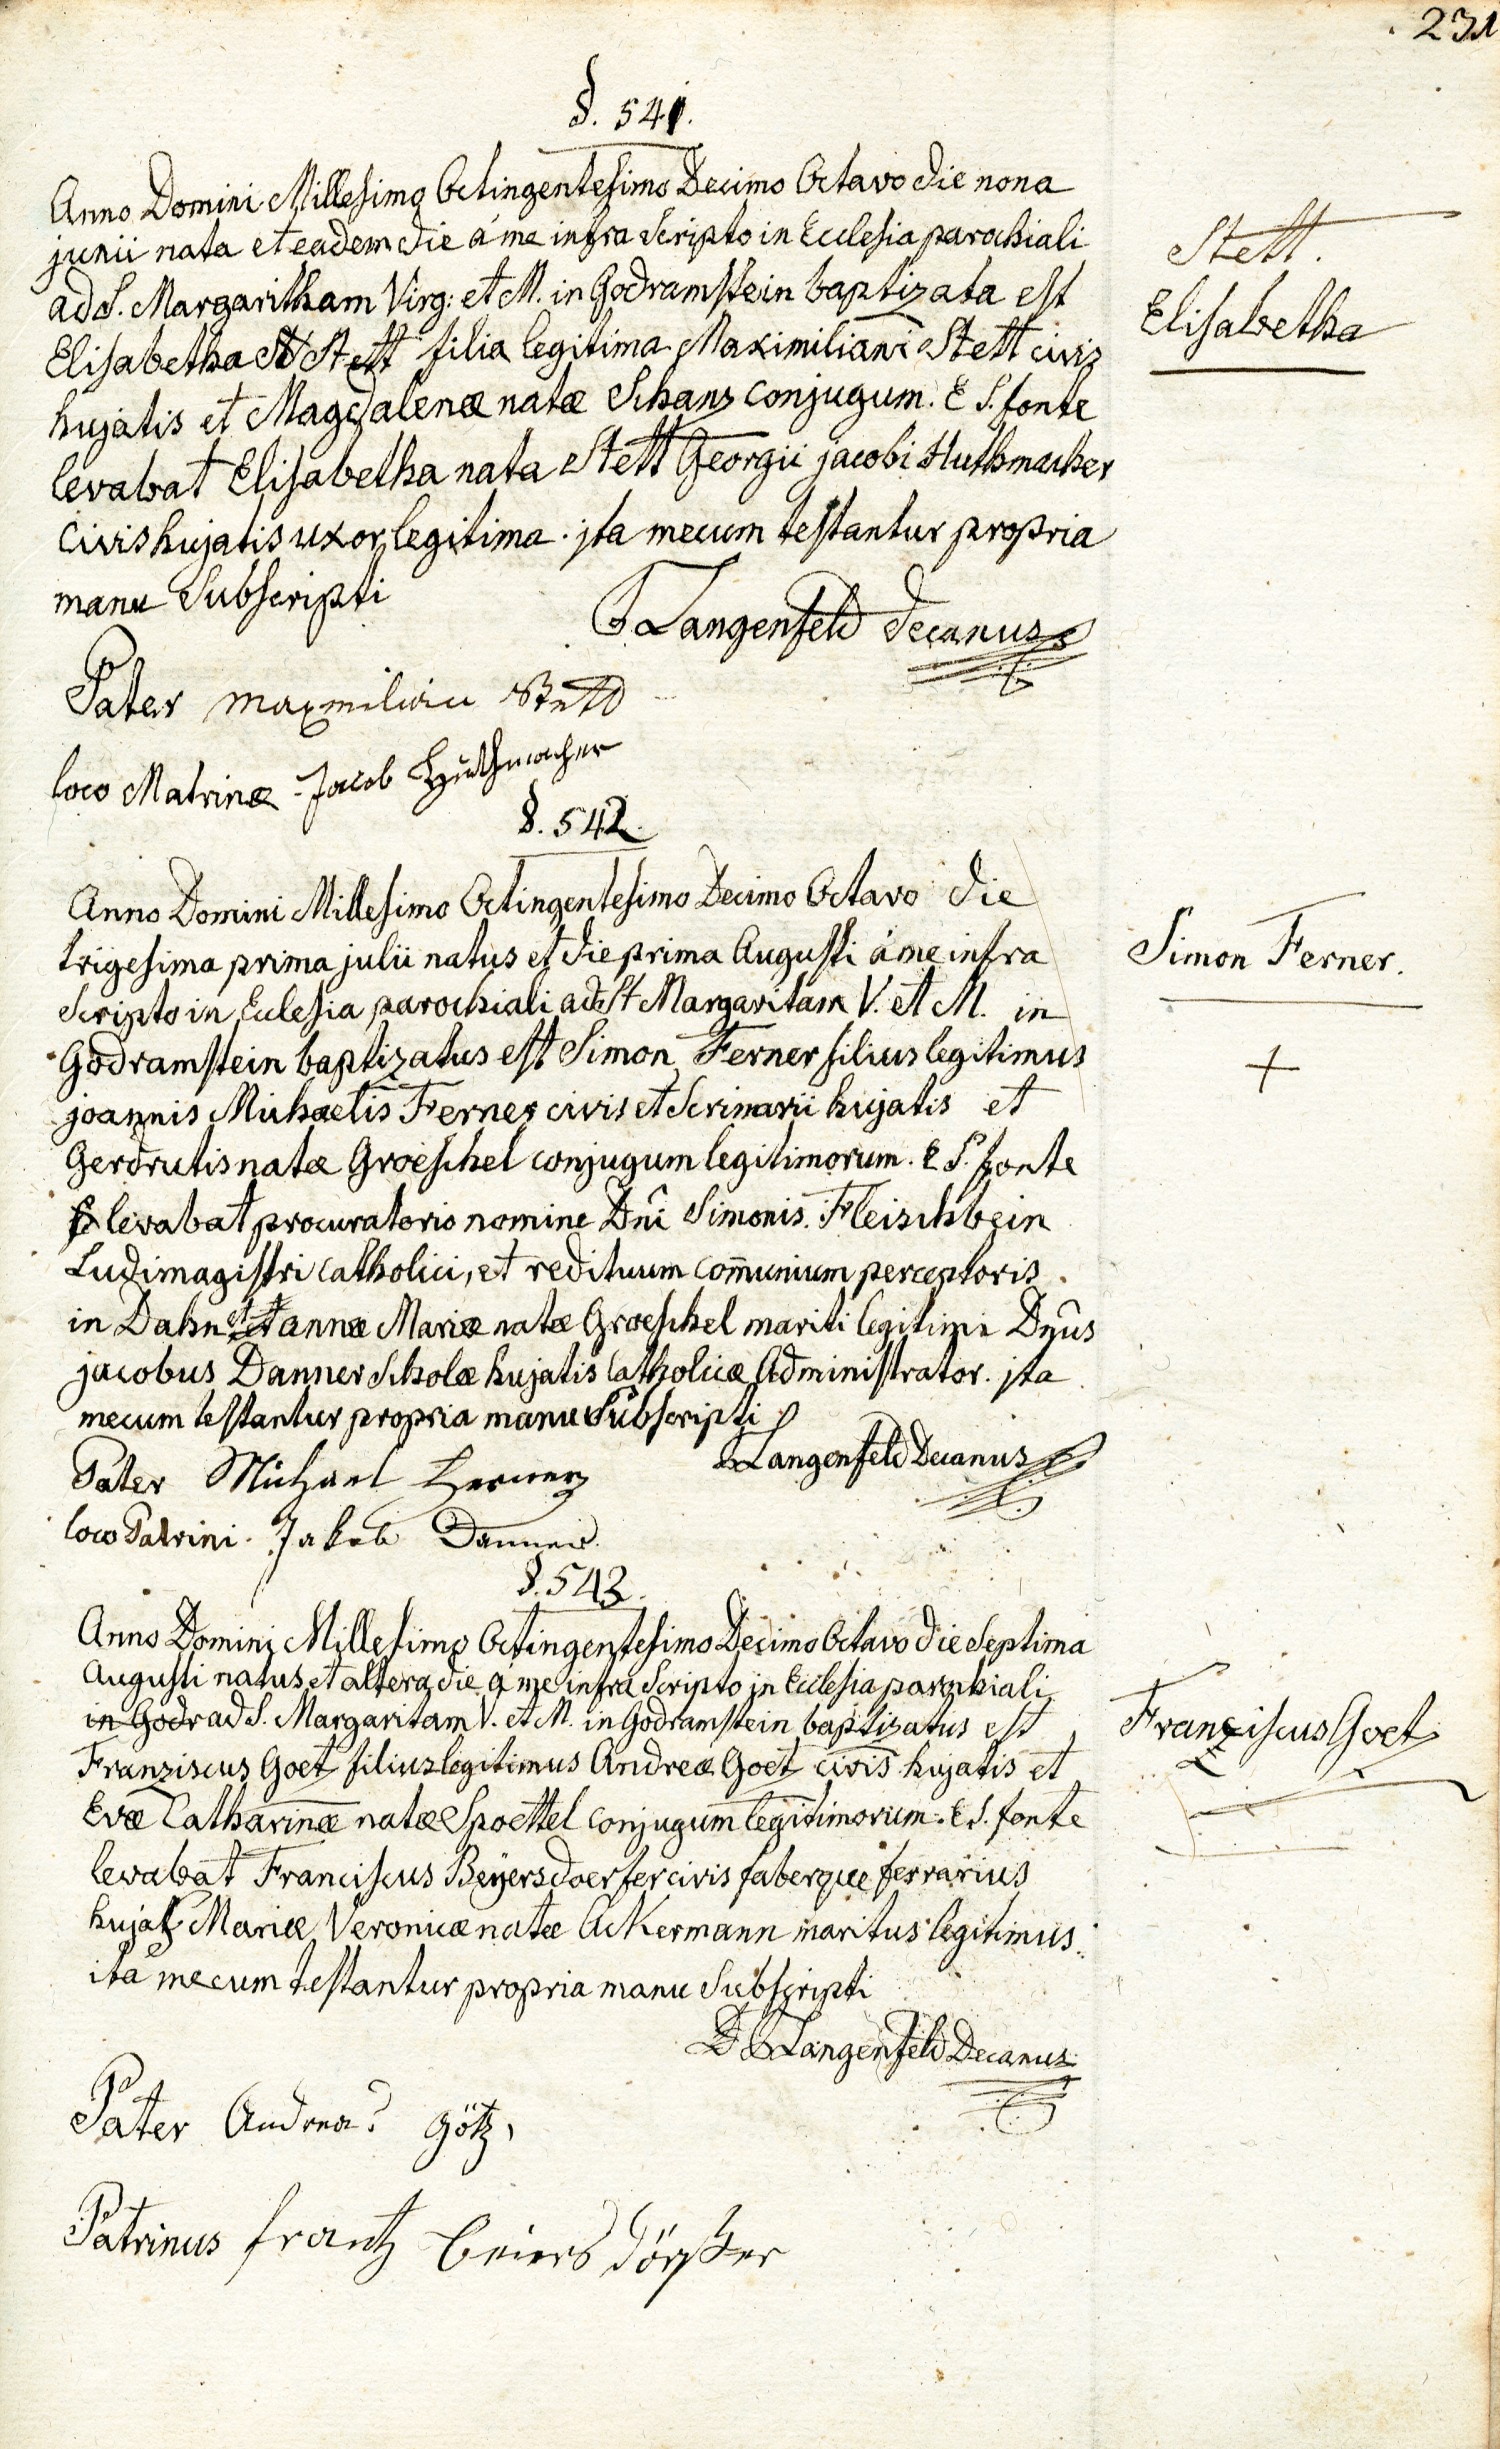 231
§. 541.
Anno Domini Millesimo Octingentesimo Decimo Octavo die nona
junii nata et eadem die á me infra Scripto in Ecclesia parochiali
ad S. Margaritham Virg: et M. in Godramstein baptizata est
Elisabetha Stett filia legitima Maximiliani Stett civis
hujatis et Magdalenæ natæ Schanz conjugum. E S. fonte
levabat Elisabetha nata Stett Georgii jacobi Huthmacher
Civis hujatis uxor legitima. jta mecum testantur propria
manu Subscripti
Langenfeld Decanus
Stett.
Elisabetha
Pater Maxmilian Stett
loco Matrinæ Jacob Huthmacher
§. 542.
Anno Domini Millesimo Octingentesimo Decimo Octavo die
trigesima prima julii natus et die prima Augusti á me infra
Scripto in Eclesia parochiali ad St Margaritam V. et M. in
Godramstein baptizatus est Simon Ferner filius legitimus
joannis Michaelis Ferner civis et Scrinarii hujatis et
Gerdrutis natæ Groeschel conjugum legitimorum. E S. fonte
levabat procuratorio nomine Dnî Simonis Fleischbein
Ludimagistri Catholici, et redituum com̄unium perceptoris
in Dahn et annæ Mariæ natæ Groeschel mariti legitimi Dnûs
jacobus Danner Scholæ hujatis Catholicæ Administrator. jta
mecum testantur propria manu Subscripti
Langenfeld Decanus
Simon Ferner.
+
Pater Michael Ferner
loco Patrini. Jakob Danner.
§. 543.
Anno Domini Millesimo Octingentesimo Decimo Octavo die Septima
Augusti natus et altera die á me infra Scripto in Ecclesia parochiali
in Godr ad S. Margaritam V. et M. in Godramstein baptizatus est
Franziscus Goetz filius legitimus Andreæ Goetz civis hujatis et
Evæ Catharinæ natæ Spoettel conjugum legitimorum. E S. fonte
levabat Franciscus Beyersdoerfer civis faberque ferrarius
hujat Mariæ Veronicæ natæ Ackermann maritus legitimus.
ita mecum testantur propria manu Subscripti
Langenfeld Decanus
Franziscus Goetz
Pater Andreas Götz,
Patrinus frantz beiersdörfer